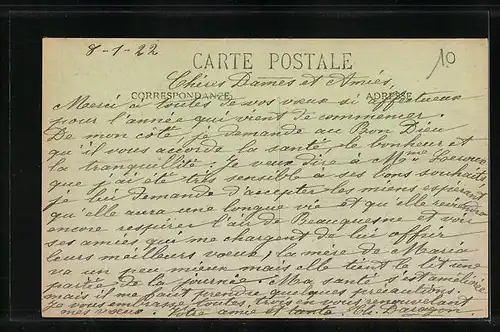 8-1-22
CARTE POSTALE
10
Chères Dames et Amies
CORRESPONDANCE
ADRESSE
Merci à toutes de vos vœux si affectueux
pour l'année qui vient de commencer.
De mon côté je demande au Bon Dieu
qu'il vous accorde la santé le bonheur et
la tranquillité. Je veux dire à Mme
que j'ai été très sensible à ses bons souhaits
je lui demande d'accepter les miens espérant
qu'elle aura une longue vie et qu'elle viendra
encore respirer l'air de Beauquesne et voir
ses amies qui me chargent de lui offrir
leurs meilleurs vœux; la mère de Maria
va un peu mieux mais elle tient le lit une
partie de la journée. Ma santé est améliorée
mais il me faut prendre quelques précautions.
Je vous embrasse toutes trois en vous renouvelant
mes vœux. Votre amie et tante